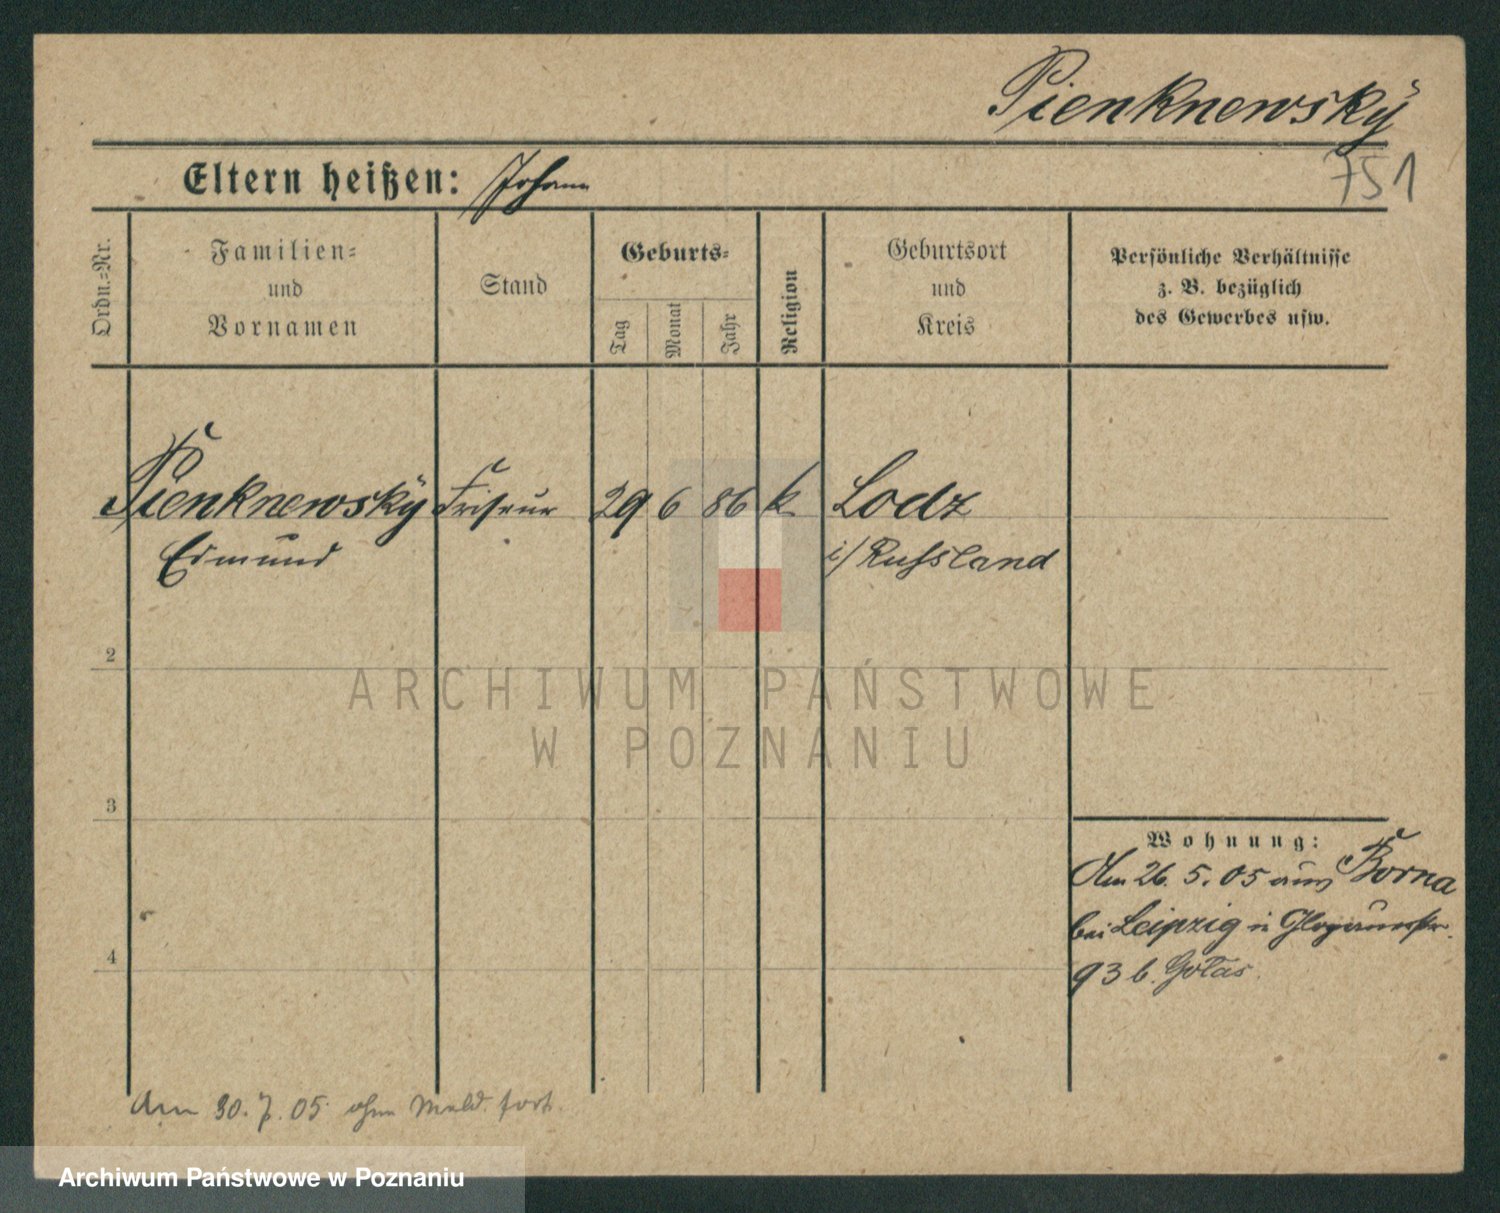 Pienknewsky
751
Eltern heißen: Johann
Ordn.-Nr.
Familien-
und
Vornamen
Stand
Geburts-
Tag
Monat
Jahr
Religion
Geburtsort
und
Kreis
Persönliche Verhältnisse
z. B. bezüglich
des Gewerbes usw.
Pienknewsky Friseur 29 6 86 k Lodz
Edmund i/ Russland
2
ARCHIWUM PAŃSTWOWE
W POZNANIU
3
Wohnung:
Am 26. 5. 05 aus Borna
bei Leipzig n Glogauerstr.
93 b. Golas
4
Am 30. 7. 05 ohne Meld. fort.
Archiwum Państwowe w Poznaniu